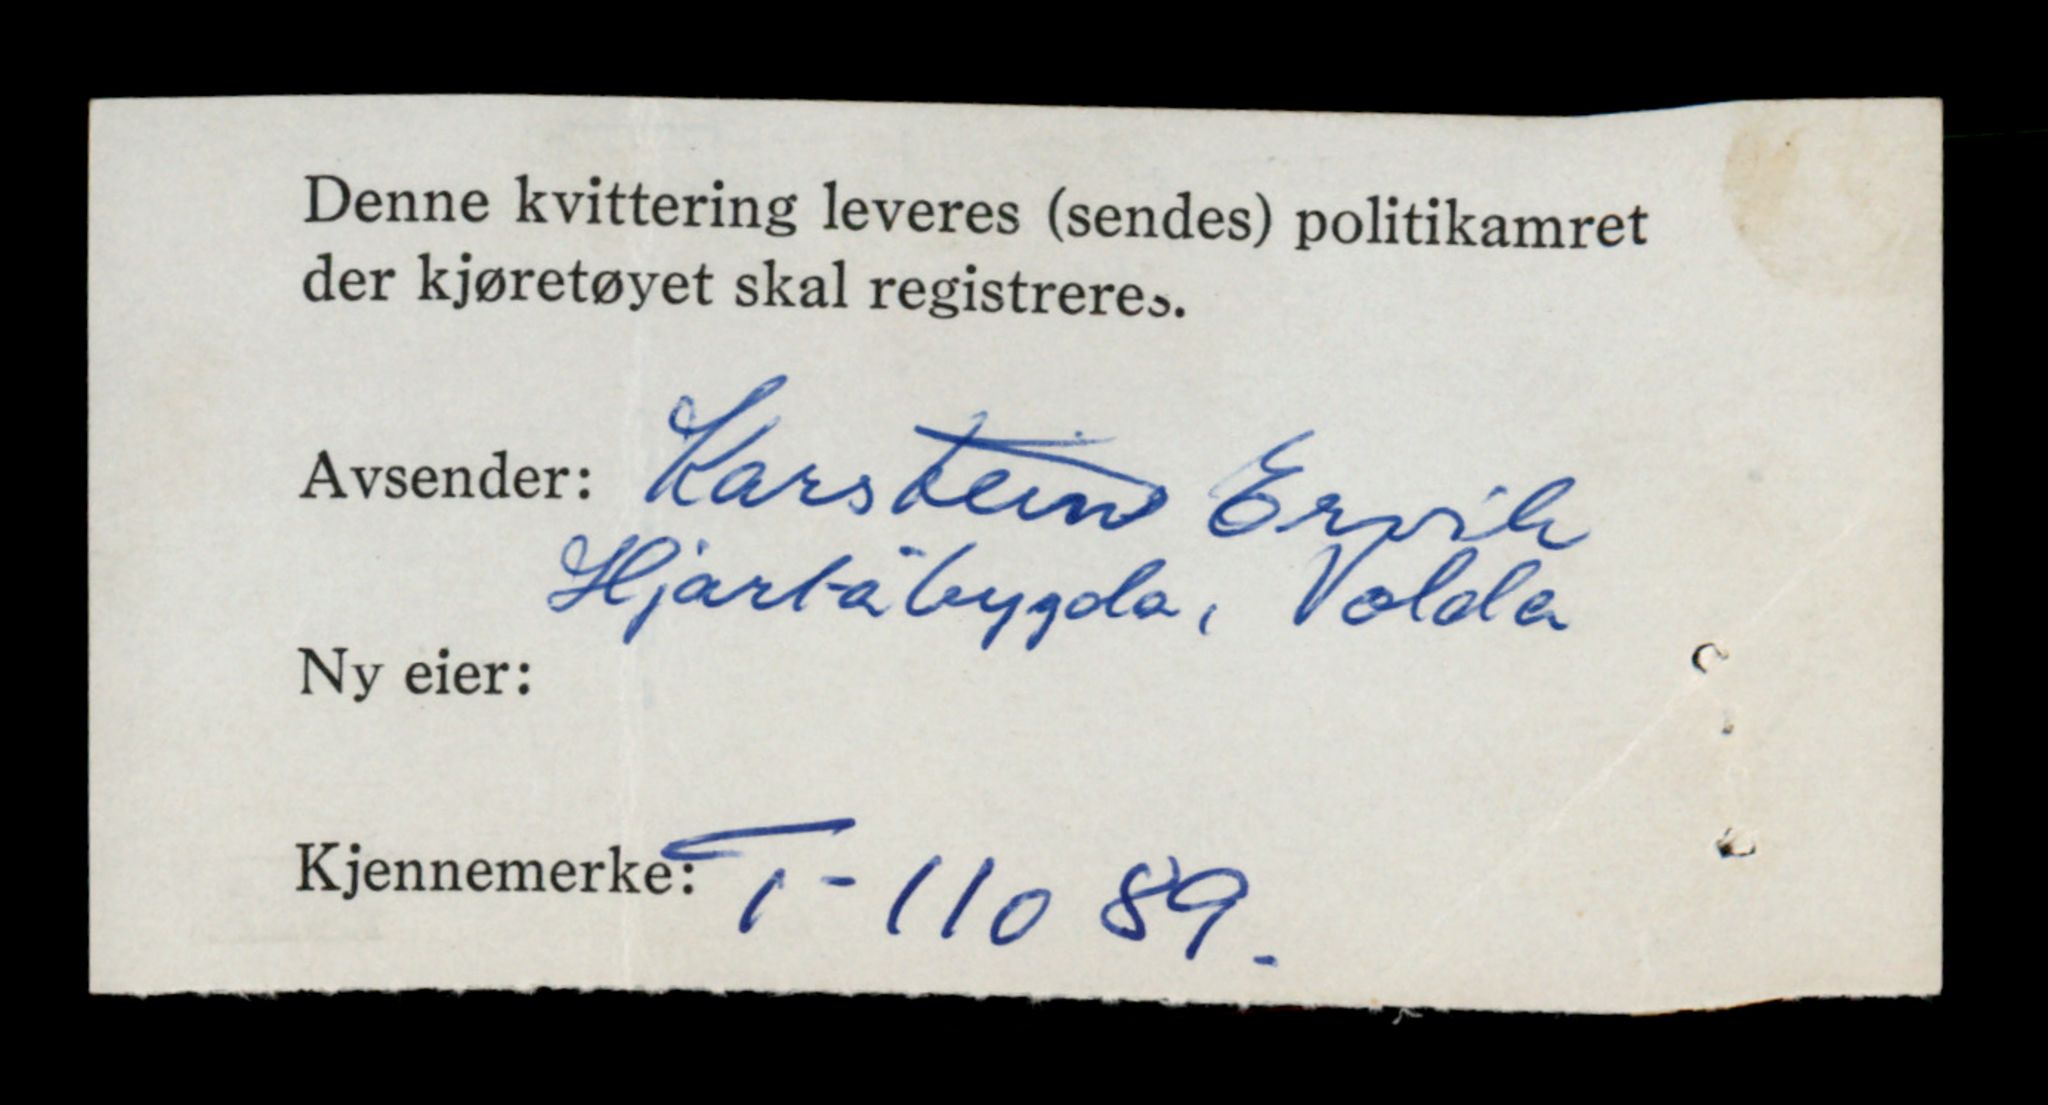 Denne kvittering leveres (sendes) politikamret
der kjøretøyet skal registreres.
Avsender: Karstein Ervik
Hjartåbygda, Volda
Ny eier:
Kjennemerke: T-11089.